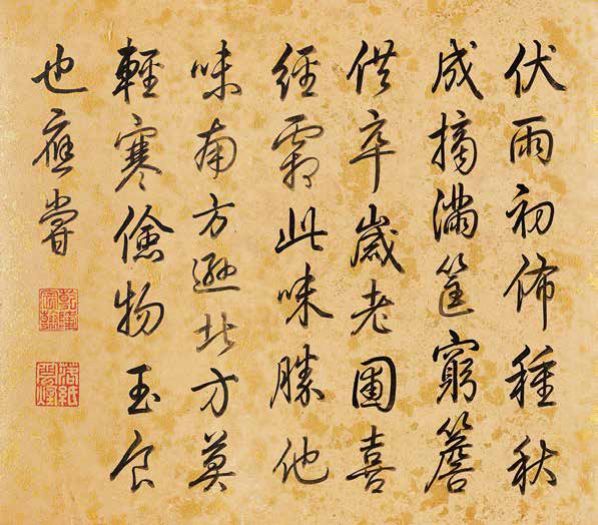 伏雨初佈種秋
成摘滿筐窮簷
供卒歲老圃喜
經霜此味勝他
味南方遜北方莫
輕寒儉物玉食
也應嘗
乾隆宸翰
落紙雲煙